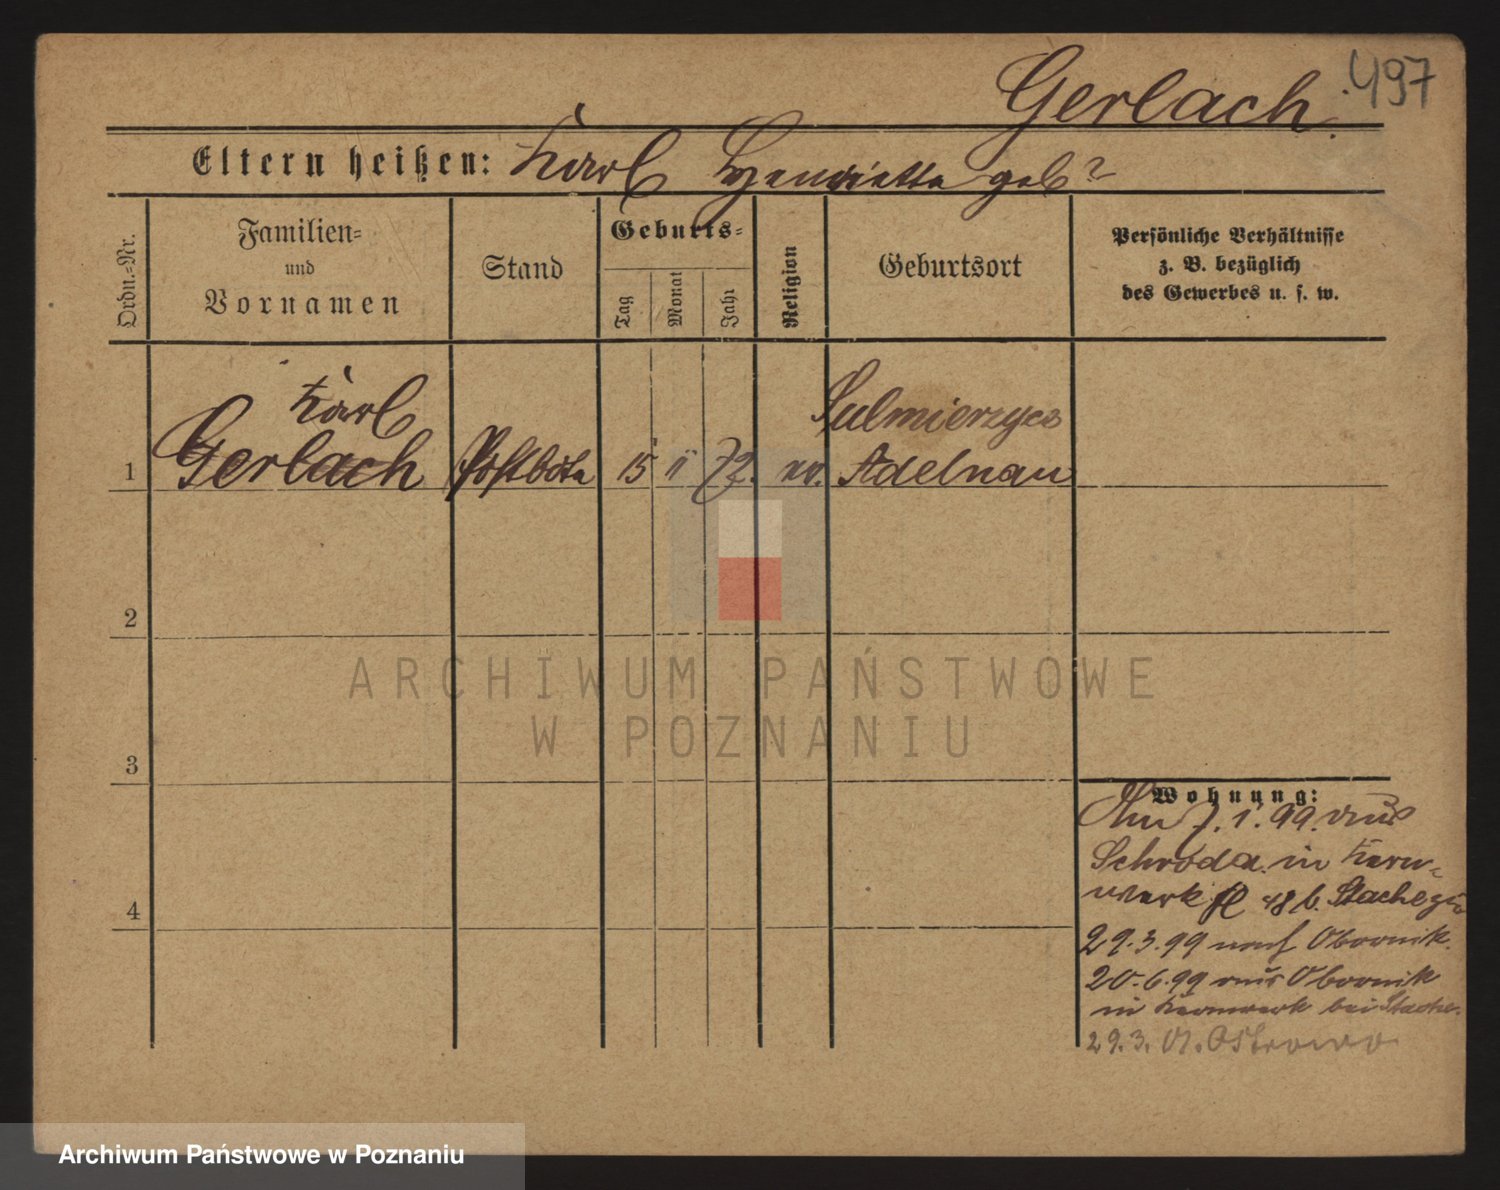 Gerlach. 497
Eltern heißen: Karl Henriette geb?
Ordn.-Nr.
Familien-
und
Vornamen
Stand
Geburts-
Tag
Monat
Jahr
Religion
Geburtsort
Persönliche Verhältnisse
z. B. bezüglich
des Gewerbes u. s. w.
Karl Sulmierzyce
1 Gerlach Postbote 15 11 72. ev. Adelnau
2
3
4
Wohnung:
Am 7. 1. 99. aus
Schroda. in Kern-
werk 48 b. Stache
29.3.99 nach Obornik.
20.6.99 aus Obornik
in Kernwerk bei Stache.
29.3. 01. Ostrowo
ARCHIWUM PAŃSTWOWE
W POZNANIU
Archiwum Państwowe w Poznaniu